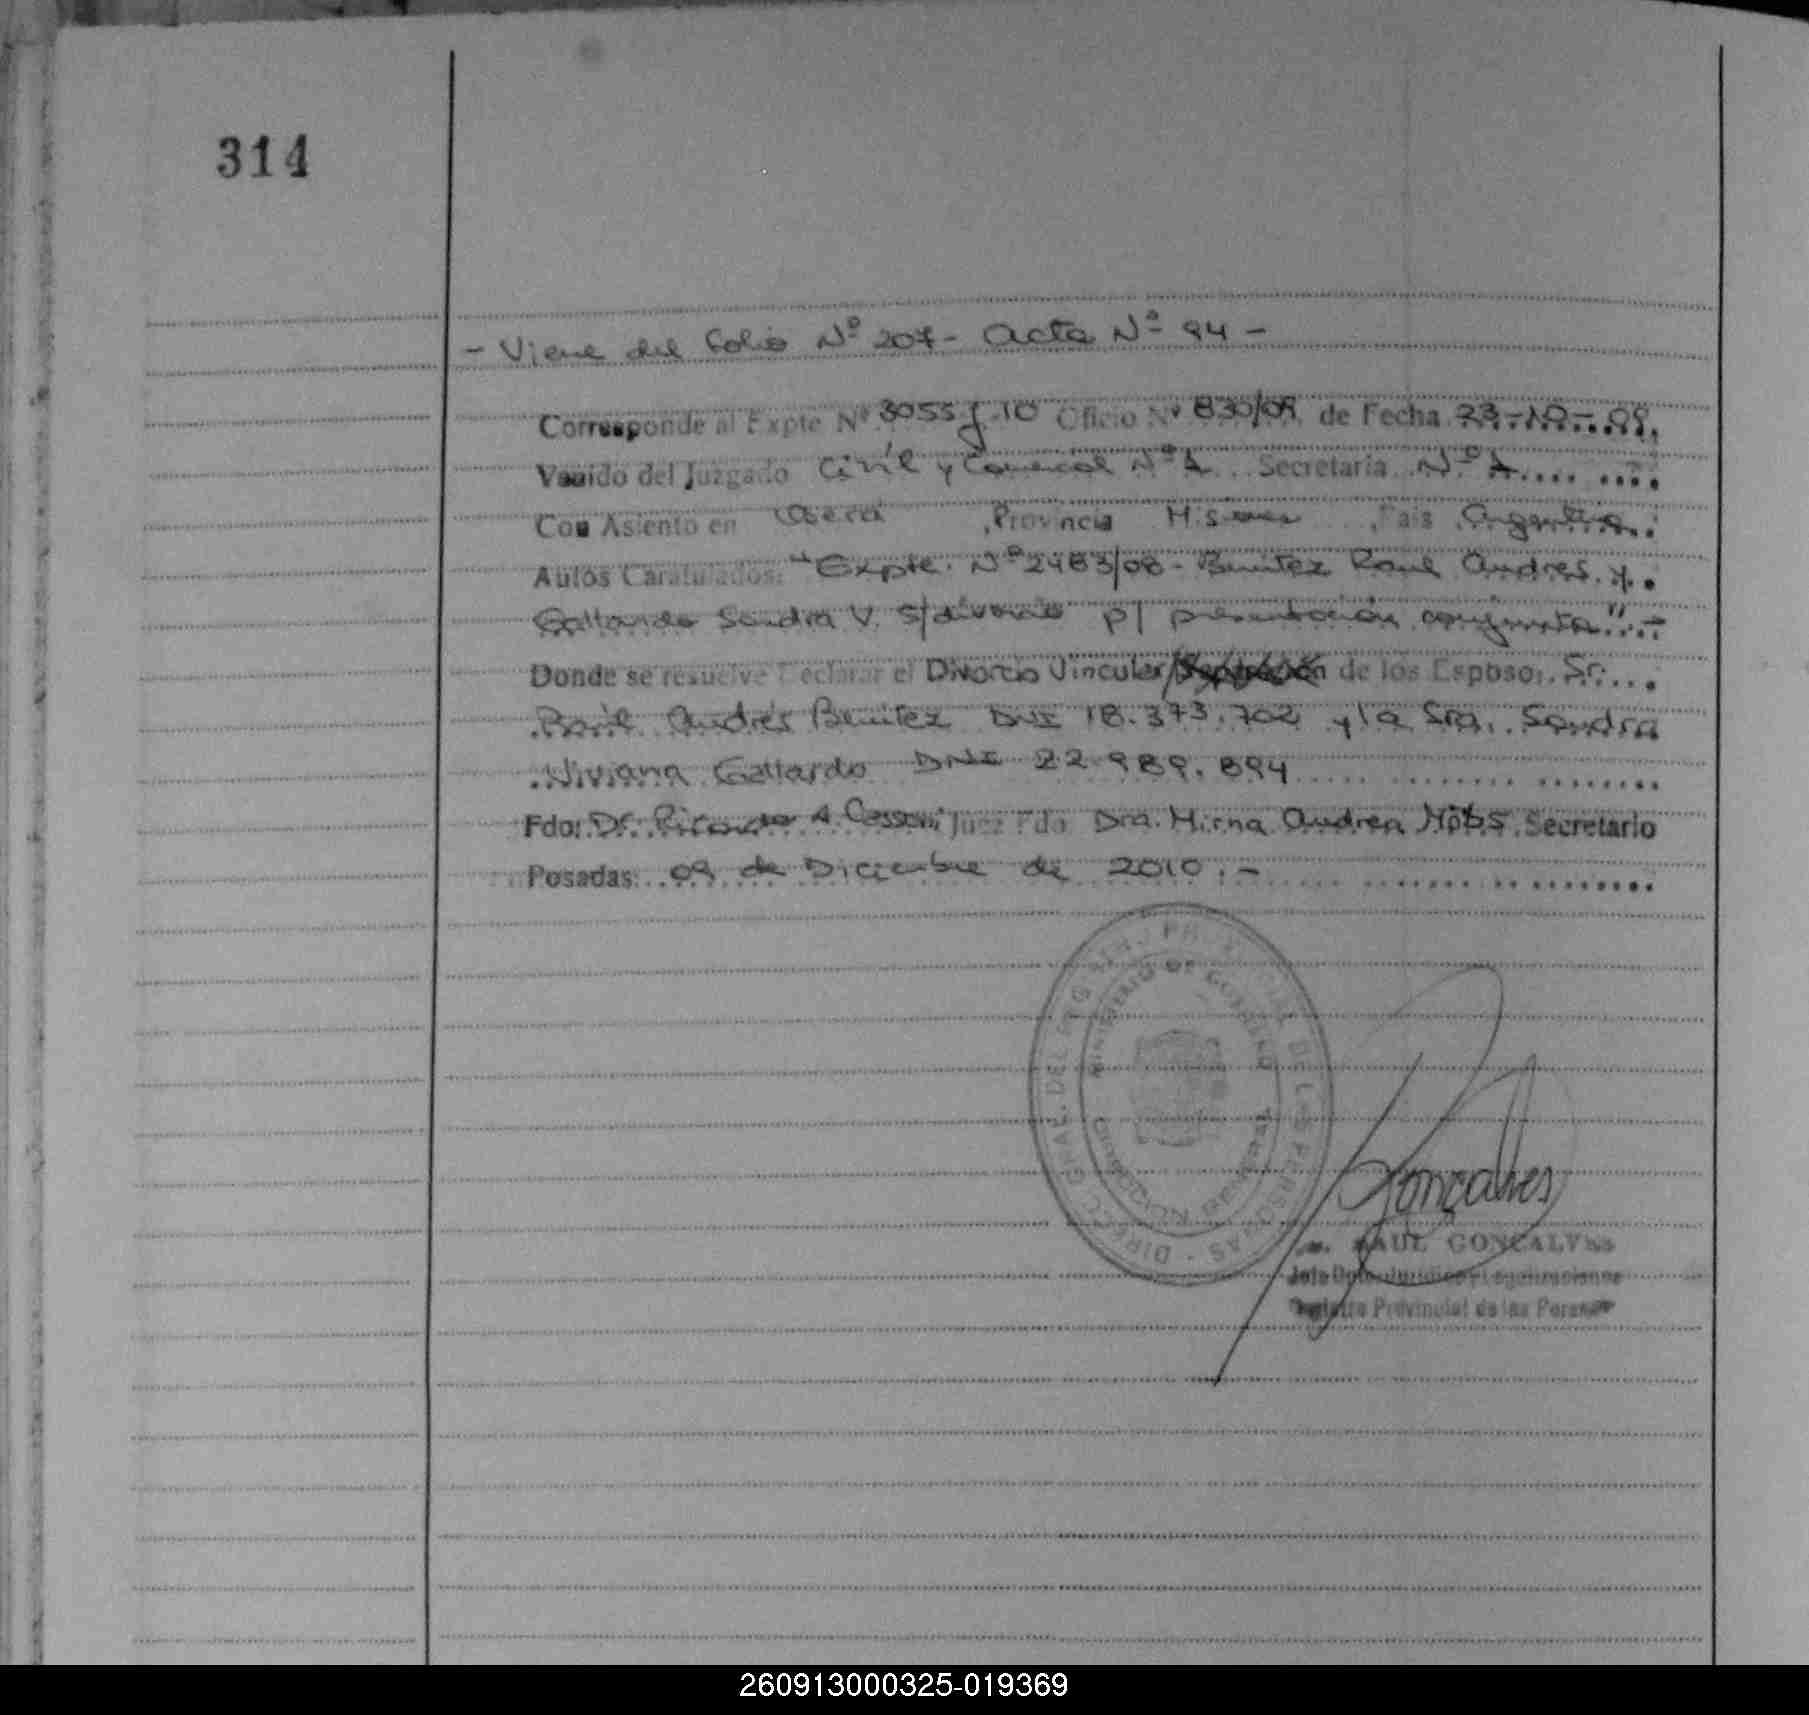 314
- Viene del folio Nº 207 - Acta Nº 94 -
Corresponde al Expte Nº 3055 f 10 Oficio Nº 830/09 de Fecha 23-10-09.
Venido del Juzgado Civil y Comercial Nº 1 Secretaria Nº 1
Con Asiento en Oberá , Provincia Misiones , País Argentina
Autos Caratulados: "Expte. Nº 2483/08 - Benitez Raul Andres y
Gallardo Sandra V. s/divorcio p/ presentación conjunta".-
Donde se resuelve Declarar el Divorcio Vincular/Separación de los Esposo: Sr.
Raúl Andrés Benitez DNI 18.373.702 y la Sra. Sandra
Viviana Gallardo DNI 22.989.894
Fdo: Dr. Ricardo A. Juez Fdo Dra. Mirna Andrea Secretario
Posadas: 09 de Diciembre de 2010.-
DIRECC. GRAL. DEL REG. PROVINCIAL DE LAS PERSONAS
MINISTERIO DE GOBIERNO
Gonçalves
RAUL GONCALVES
Jefe Dpto. Jurídico y Legalizaciones
Registro Provincial de las Personas
260913000325-019369